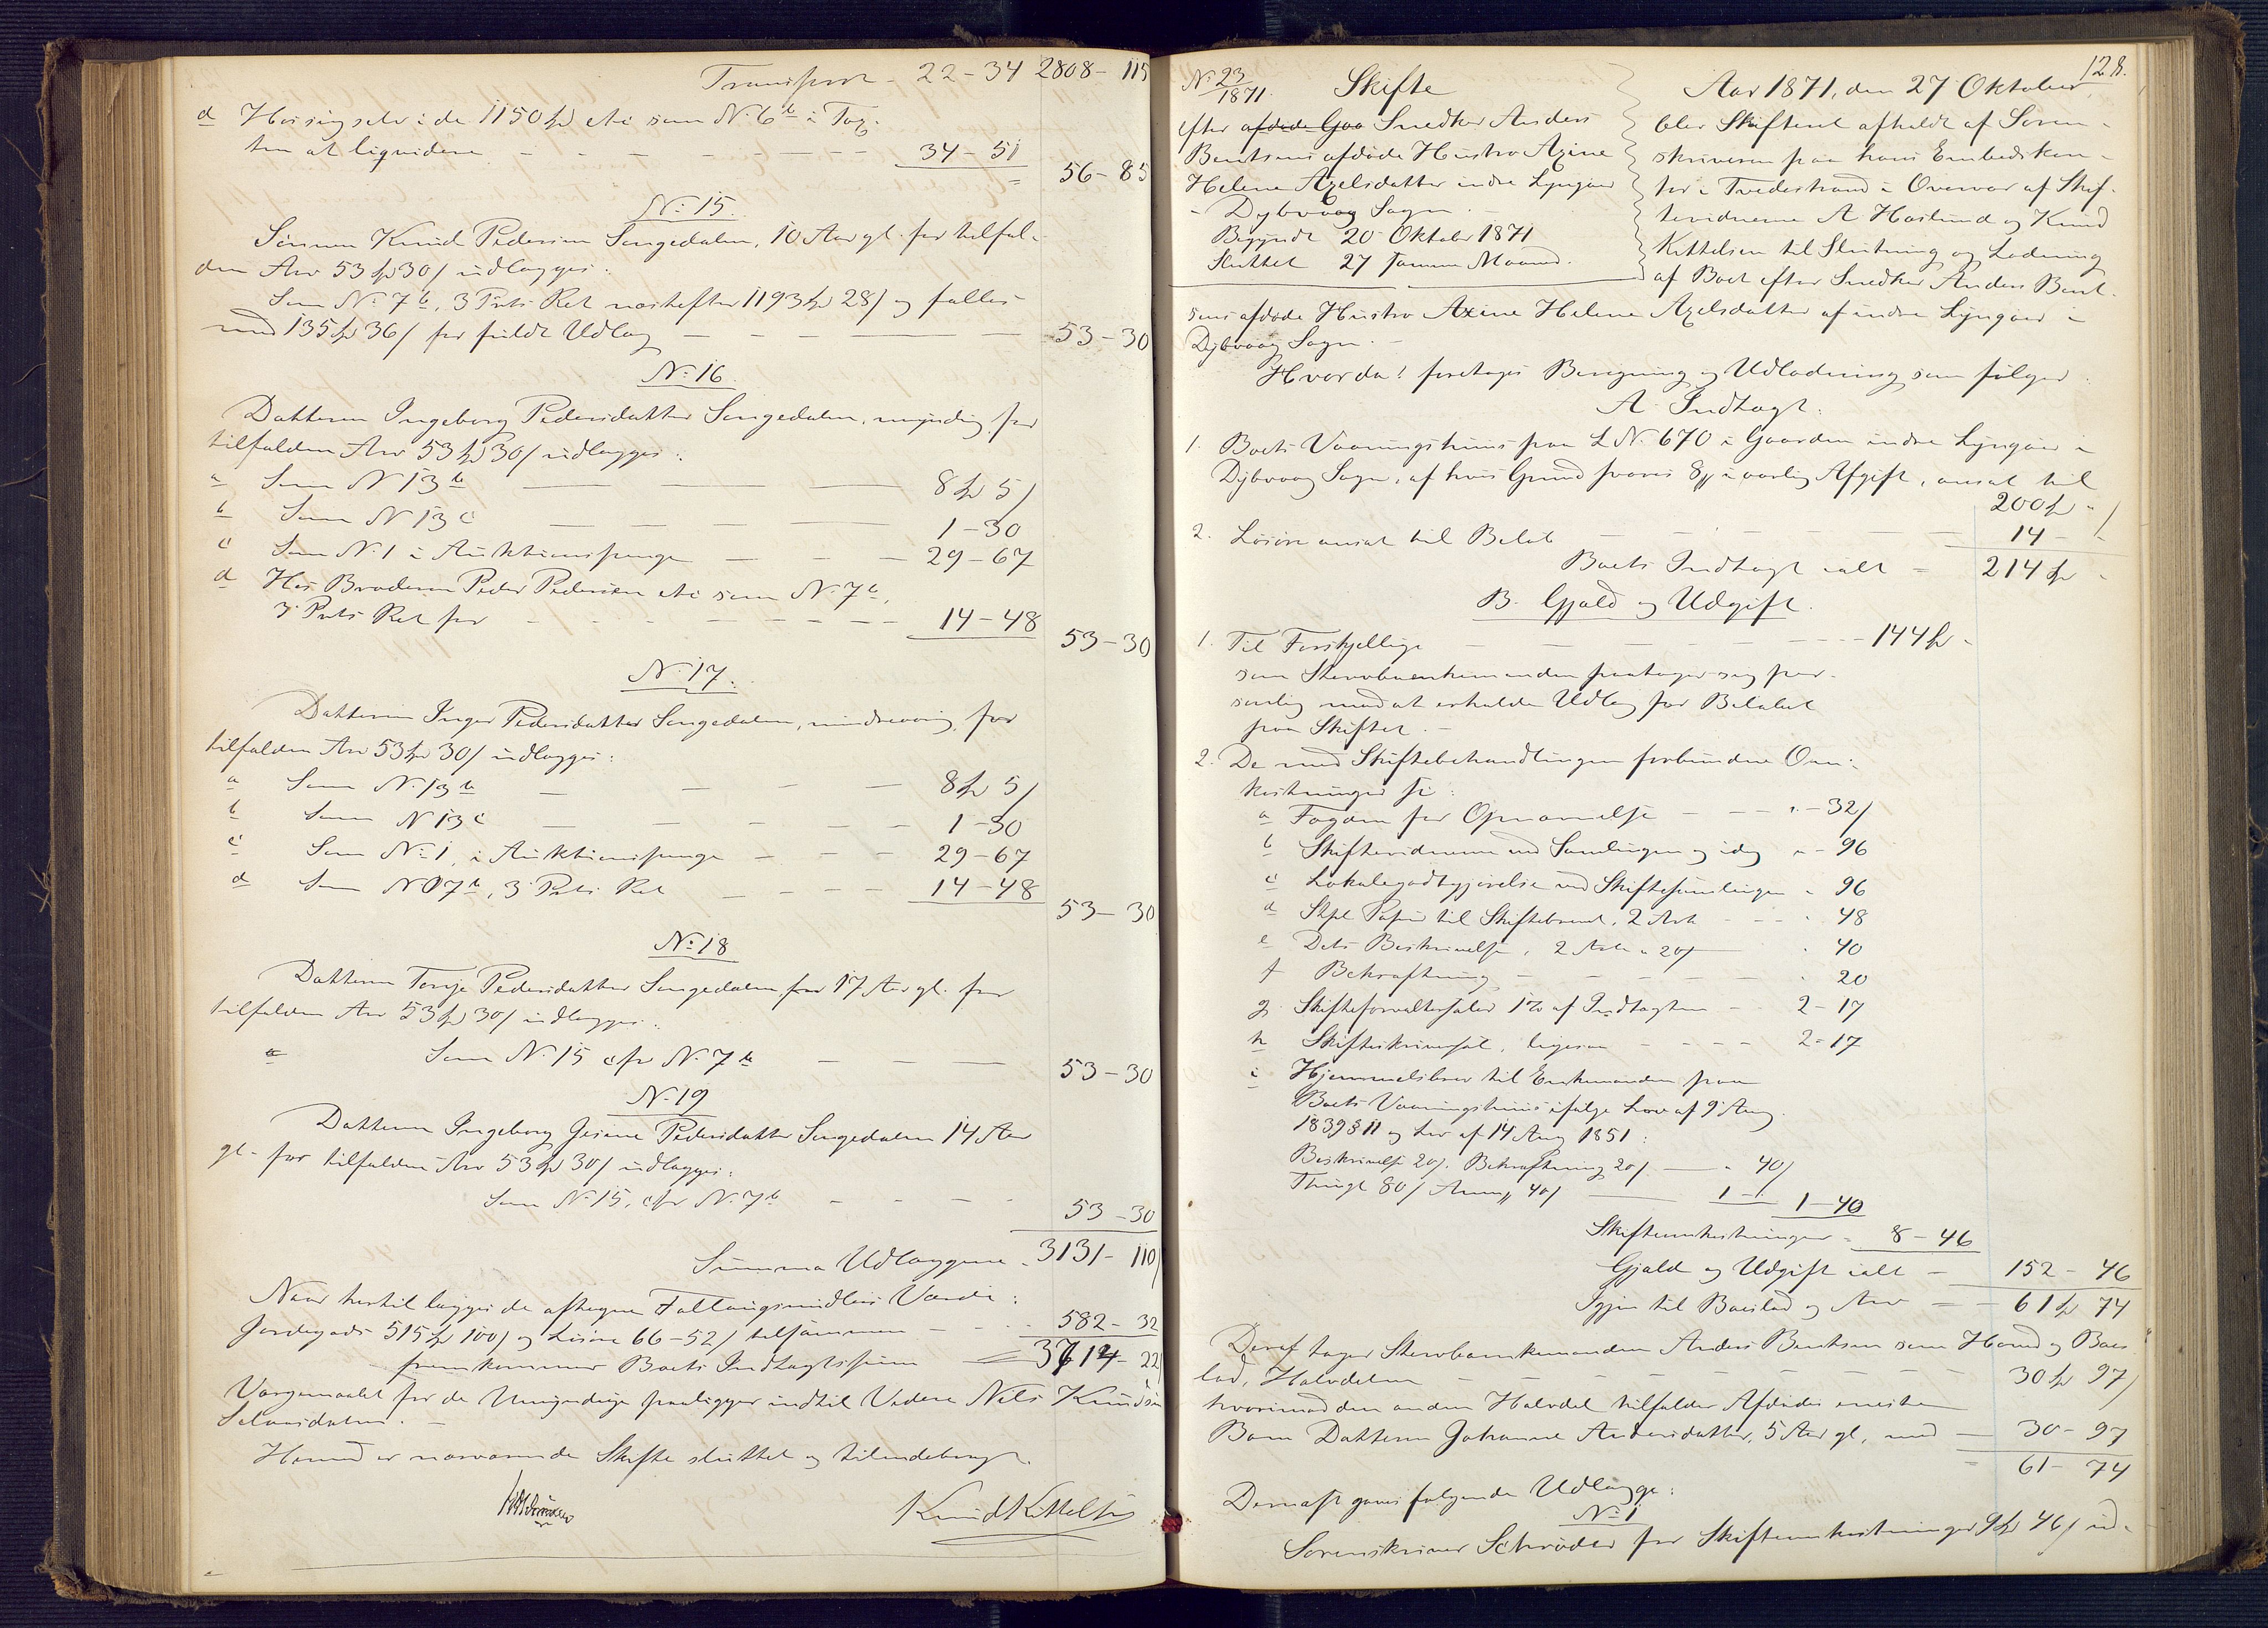 Transport - 22-34 2808-115
d Hos sig selv i de 1150 Spd etc som N: 6 b i Tax-
ten at liqvidere - - - 34-51
56-85
N: 15.
Sønnen Knud Pedersen Songedalen, 10 Aar gl. for tilfal-
den Arv 53 Spd 30 s udlægges:
Som N: 7 b, 3 Prts Ret næstefter 1193 Spd 28 s og fælles
med 135 Spd 36 s for fuldt Udlæg - - - 53-30
N: 16
Datteren Ingeborg Pedersdatter Songedalen, myndig, for
tilfalden Arv 53 Spd 30 s udlægges:
a Som N 13 b - - - 8 Spd 5 s
b Som N 13 c - - - 1-30
c Som N: 1 i Auktionspenge - - - 29-67
d Hos Broderen Peder Pedersen etc som N: 7 b,
3 Prts Ret for - - - 14-48
53-30
N: 17.
Datteren Inger Pedersdatter Songedalen, mindreaarig, for
tilfalden Arv 53 Spd 30 s udlægges:
a Som N: 13 b - - - 8 Spd 5 s
b Som N 13 c - - - 1-30
c Som N: 1, i Auktionspenge - - - 29-67
d Som N 7 b, 3 Prts Ret - - - 14-48
53-30
N: 18
Datteren Torje Pedersdatter Songedalen, 17 Aar gl. for
tilfalden Arv 53 Spd 30 s udlægges:
Som N: 15 cfr N: 7 b - - - 53-30
N: 19
Datteren Ingeborg Gesine Pedersdatter Songedalen 14 Aar
gl. for tilfalden Arv 53 Spd 30 s udlægges:
Som N: 15, cfr N: 7 b - - - 53-30
Summa Udlæggene - 3131-110 s
Naar hertil lægges de aftagne Værdi:
Jordegods 515 Spd 100 s og Løsøre 66-52 s tilsammen - - - 582-32
fremkommer Boets Indtægtssum = 3714-22 s
Værgemaalet for de Umyndige paaligger indtil Videre Nels Knudsen
Selaasdalen. -
Hermed er nærværende Skifte sluttet og tilendebragt.
Knud Kittelsen
128.
N: 23/1871. Skifte
efter afdøde Gaa Snedker Anders
Bentsens afdøde Hustro Axine
Helene Axelsdatter indre Lyngøer
i Dybvaag Sogn.
Begyndt 20 Oktober 1871
Sluttet 27 samme Maaned.
Aar 1871, den 27 Oktober
blev Skifteret afholdt af Soren-
skriveren paa hans Embedskon-
tor i Tvedestrand i Overvær af Skif-
tevidnerne A Haslund og Knud
Kittelsen til Slutning og Lodning
af Boet efter Snedker Anders Bent-
sens afdøde Hustro Axine Helene Axelsdatter af indre Lyngøer i
Dybvaag Sogn. -
Hvorda: foretoges Beregning og Udlodning som følger:
A Indtægt.
1. Boets Vaaningshuus paa L N: 670 i Gaarden indre Lyngøer i
Dybvaag Sogn, af hvis Grund svares 8 s i aarlig Afgift, ansat til
200 Spd - s
2. Løsøre ansat til Beløb - - - 14 - -
Boets Indtægt ialt - 214 Spd -
B. Gjæld og Udgift.
1. Til Forskjellige - - - 144 Spd -
som Stervboenkemanden paatager sig per-
sonlig mod at erholde Udlæg for Beløbet
paa Skiftet. -
2. De med Skiftebehandlingen forbundne Om-
kostninger:
a Fogden for Opnævnelse - - - 32 s
b Skiftevidnerne ved Samlingen og idag - - 96
c Lokalegodtgjørelse ved Skiftesamlingen - 96
d Stpl. Papir til Skiftebrevet, 2 Ark - - - 48
e Dets Beskrivelse, 2 Ark a 20 s - 40
f Bekræftning - - - 20
g Skifteforvaltersalær 1% af Indtægten - 2-17
h Skifteskriversal., ligesaa - - - 2-17
i Hjemmelsbrev til Enkemanden paa
Boets Vaaningshuus ifølge Lov af 9 Aug.
1839 § 11 og Lov af 14 Aug 1851:
Beskrivelse 20 s. Bekræftning 20 s - - 40 s
Thingl 80 s Anm. 40 s - 1 - - 1-40
Skifteomkostninger - 8-46
Gjæld og Udgift ialt - 152-46
Igjen til Boeslod og Arv - - 61 Spd 74
Deraf tager Stervboenkemanden Anders Bentsen som Hoved og Boes-
lod, Halvdelen - - - 30 Spd 97 s
hvorimod den anden Halvdel tilfalder Afdødes eneste
Barn Datteren Johanne Andersdatter, 5 Aar gl, med - 30-97
61-74
Dernæst gjøres følgende Udlægge:
N: 1
Sorenskriver Schrøder for Skifteomkostninger 9 Spd 46 s ud-